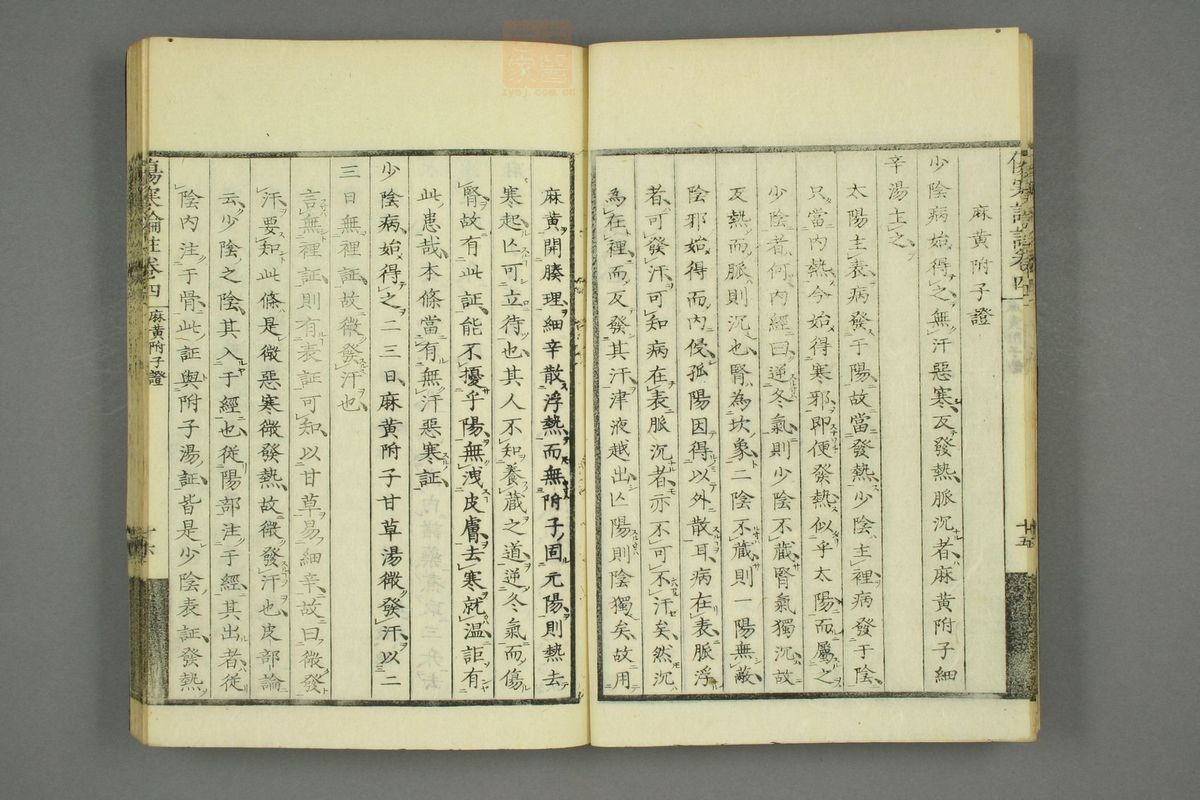 麻黄附子證
少陰病始得之無汗惡寒反發熱脈沉者麻黄附子細
辛湯主之
太陽主表病發于陽故當發熱少陰主裡病發于陰
只當内熱今始得寒邪即便發熱似乎太陽而屬之
少陰者何内經曰逆冬氣則少陰不藏腎氣獨沉故
反熱而脈則沉也腎為坎象二陰不藏則一陽無蔽
陰邪始得而内侵孤陽因得以外散耳病在表脈浮
者可發汗可知病在表脈沉者亦不可不汗矣然沉
為在裡而反發其汗津液越出亾陽則陰獨矣故用
麻黄開腠理細辛散浮熱而無附子固元陽則熱去
寒起亾可立待也其人不知養藏之道逆冬氣而傷
腎故有此証能不擾乎陽無洩皮膚去寒就温詎有
此患哉本條當有無汗惡寒証
少陰病始得之二三日麻黄附子甘草湯微發汗以二
三日無裡証故微發汗也
言無裡証則有表証可知以甘草易細辛故曰微發
汗要知此條是微惡寒微發熱故微發汗也皮部論
云少陰之陰其入于經也従陽部注于經其出者従
陰内注于骨此証與附子湯証皆是少陰表証發熱
傷寒論註卷四
麻黄附子證
十六
十五
zysj.com.cn